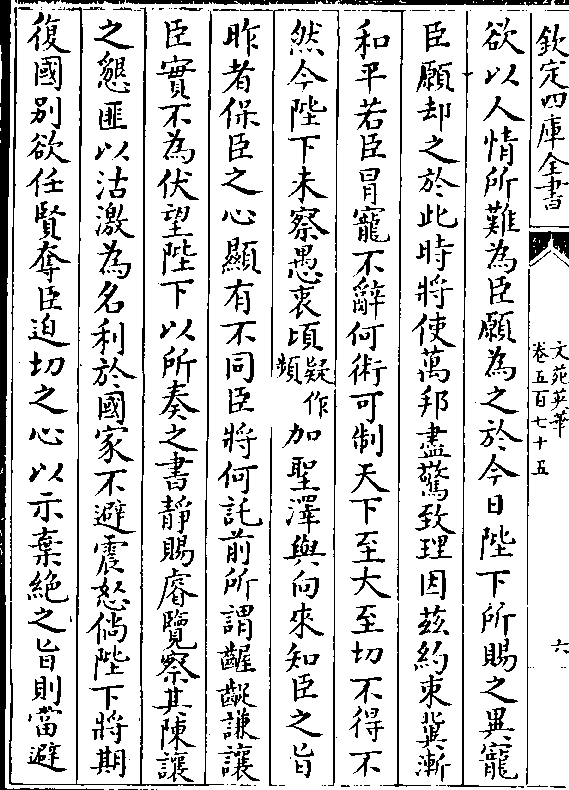 欽定四庫全書
文苑英華
卷五百七十五
六
欲以人情所難為臣願為之於今日陛下所賜之異寵
臣願却之於此時將使萬邦盡驚致理因茲約束冀漸
和平若臣冒寵不辭何術可制天下至大至切不得不
然今陛下未察愚衷頃疑作頻加聖澤與向來知臣之旨
昨者保臣之心顯有不同臣將何託前所謂齷齪謙讓
臣實不為伏望陛下以所奏之書靜賜睿覽察其陳讓
之懇匪以沽激為名利於國家不避震怒倘陛下將期
復國別欲任賢奪臣迫切之心以示棄絶之旨則當避